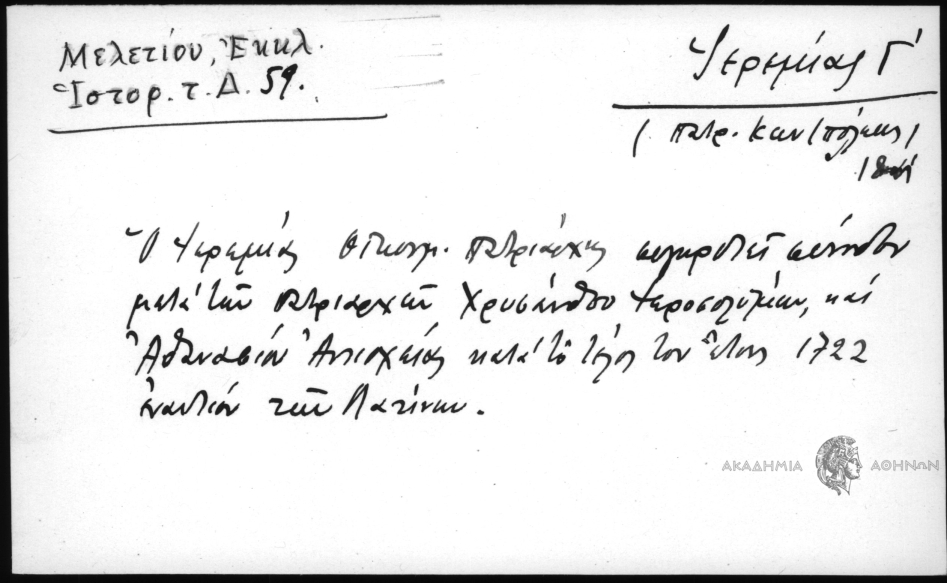 Μελετίου, Ἐκκλ.
Ἱστορ. τ. Δ. 59.
Ἱερεμίας Γ΄
( Πατρ. Κων/πόλεως )
Ὁ Ἱερεμίας Οἰκουμ. Πατριάρχης συγκροτεῖ σύνοδον
μετὰ τῶν Πατριαρχῶν Χρυσάνθου Ἱεροσολύμων, καὶ
Ἀθανασίου Ἀντιοχείας κατὰ τὸ τέλος του ἔτους 1722
ἐναντίον τῶν Λατίνων.
ΑΚΑΔΗΜΙΑ ΑΘΗΝΩΝ